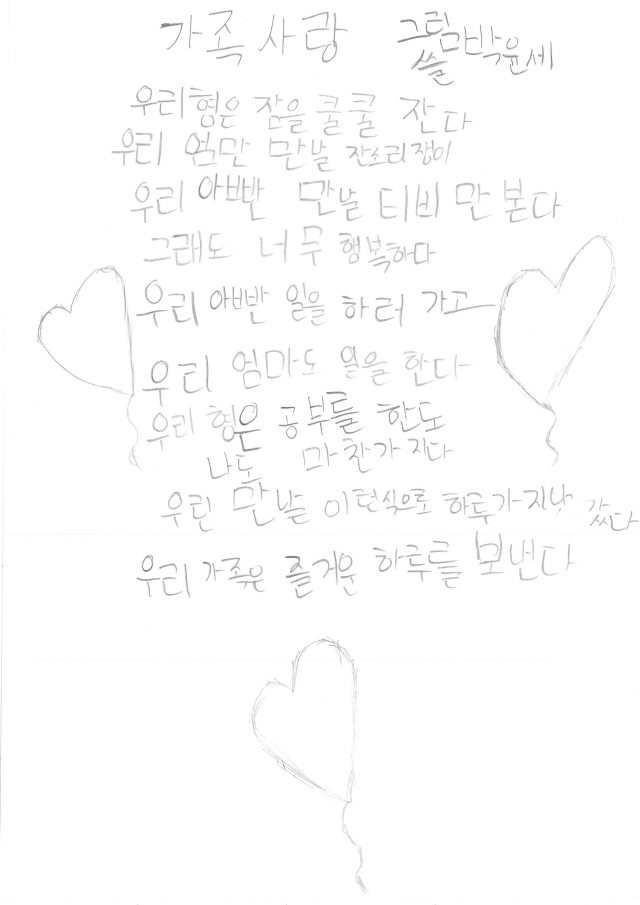 가족 사랑 그림 쓸 박윤세
우리 형은 잠을 쿨쿨 잔다
우리 엄만 만날 잔소리쟁이
우리 아빤 만날 티비만 본다
그래도 너무 행복하다
우리 아빤 일을 하러 가고
우리 엄마도 일을 한다
우리 형은 공부를 한도
나도 마찬가지다
우린 만날 이런식으로 하루가 지났 갔다
우리 가족은 즐거운 하루를 보낸다